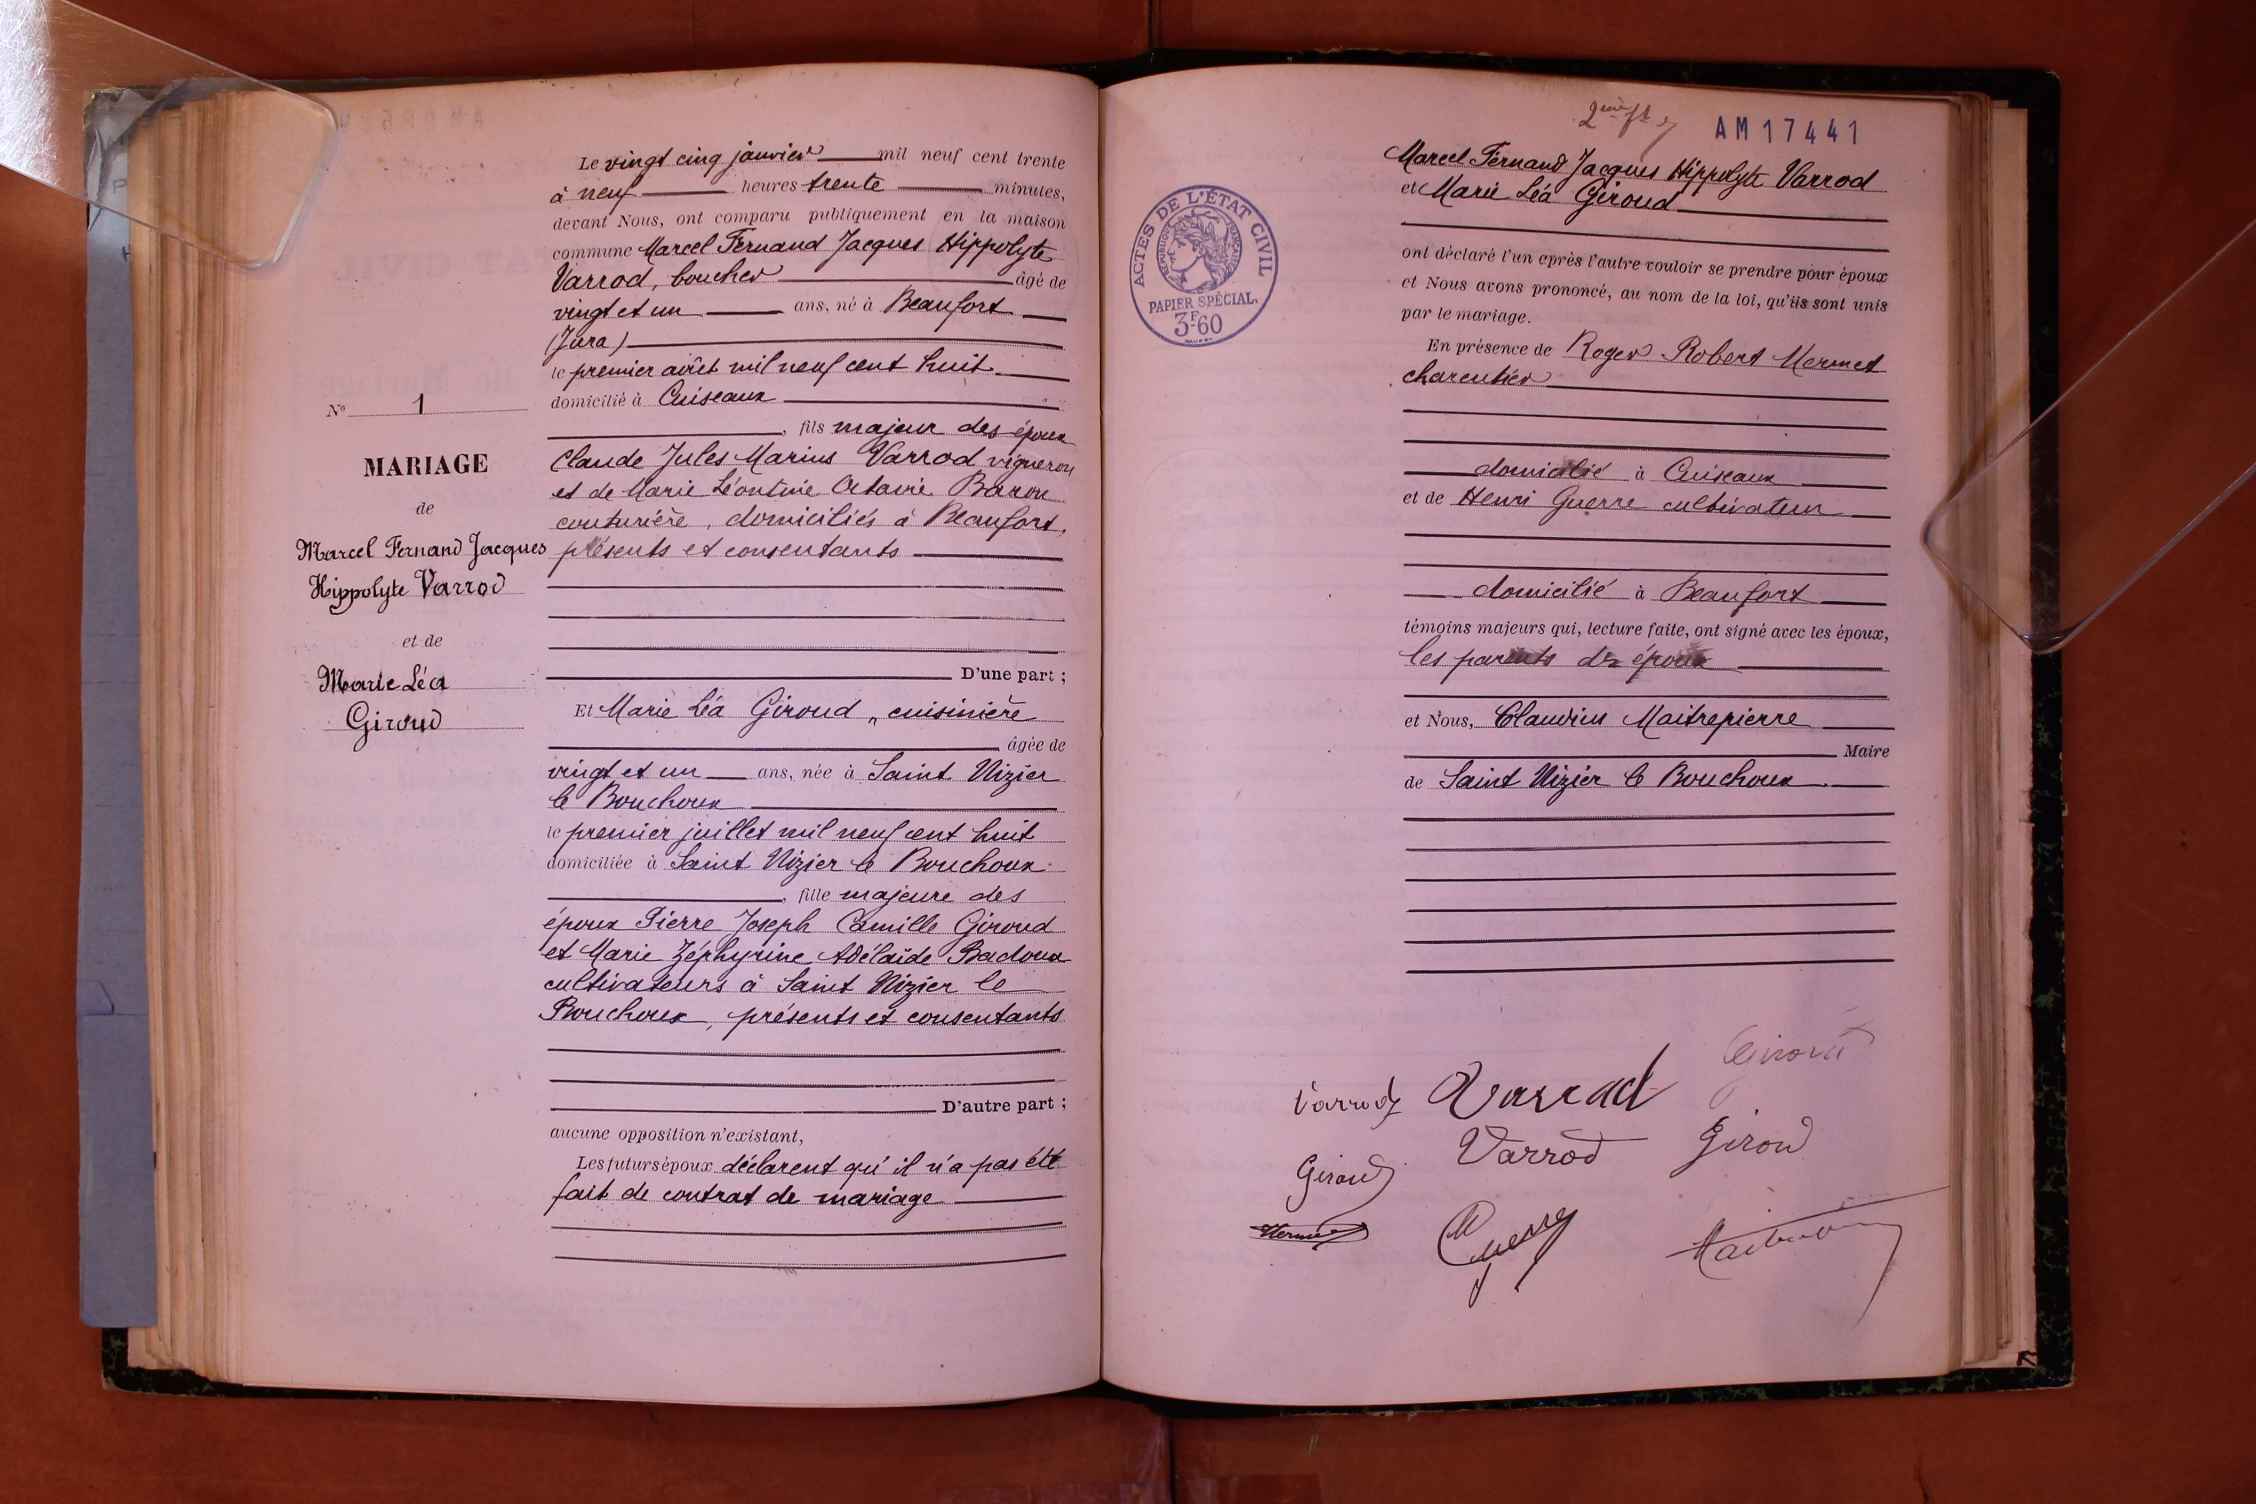 N° 1
MARIAGE
de
Marcel Fernand Jacques
Hippolyte Varrod
et de
Marie Léa
Giroud
Le vingt cinq janvier mil neuf cent trente
à neuf heures trente minutes,
devant Nous, ont comparu publiquement en la maison
commune Marcel Fernand Jacques Hippolyte
Varrod, boucher âgé de
vingt et un ans, né à Beaufort
(Jura)
le premier août mil neuf cent huit
domicilié à Cuiseaux
, fils majeur des époux
Claude Jules Marius Varrod vigneron
et de Marie Léontine Octavie Baron
couturière, domiciliés à Beaufort,
présents et consentants
D'une part ;
Et Marie Léa Giroud, cuisinière
âgée de
vingt et un ans, née à Saint Nizier
le Bouchoux
le premier juillet mil neuf cent huit
domiciliée à Saint Nizier le Bouchoux
, fille majeure des
époux Pierre Joseph Camille Giroud
et Marie Zéphyrine Adélaïde Badoux
cultivateurs à Saint Nizier le
Bouchoux, présents et consentants
D'autre part ;
aucune opposition n'existant,
Les futurs époux déclarent qu'il n'a pas été
fait de contrat de mariage
AM17441
ACTES DE L'ÉTAT CIVIL
RÉPUBLIQUE FRANÇAISE
PAPIER SPÉCIAL.
3F60
Marcel Fernand Jacques Hippolyte Varrod
et Marie Léa Giroud
ont déclaré l'un après l'autre vouloir se prendre pour époux
et Nous avons prononcé, au nom de la loi, qu'ils sont unis
par le mariage.
En présence de Roger Robert Mermet
charcutier
domicilié à Cuiseaux
et de Henri Guerre cultivateur
domicilié à Beaufort
témoins majeurs qui, lecture faite, ont signé avec les époux,
les parents des époux
et Nous, Claudius Maitrepierre
Maire
de Saint Nizier le Bouchoux
Giroud
Varrod Varrod
Varrod Giroud
Giroud
Mermet Guerre